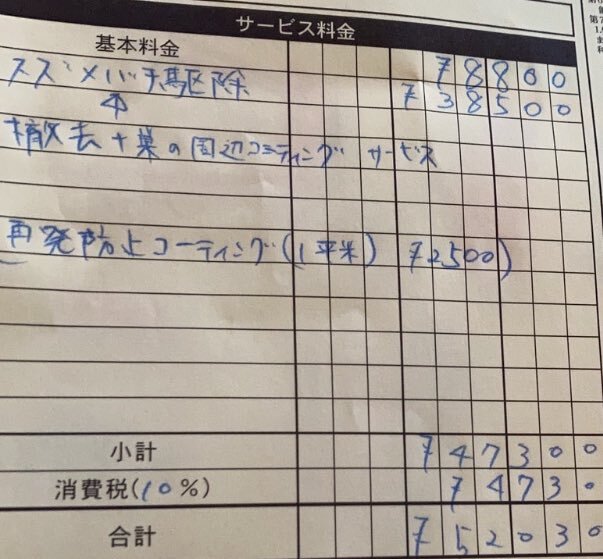 サービス料金
基本料金 ¥8800
スズメバチ駆除 ¥38500
撤去+巣の周辺コーティング サービス
再発防止コーティング(1平米) ¥2500)
小計 ¥47300
消費税(10%) ¥4730
合計 ¥52030